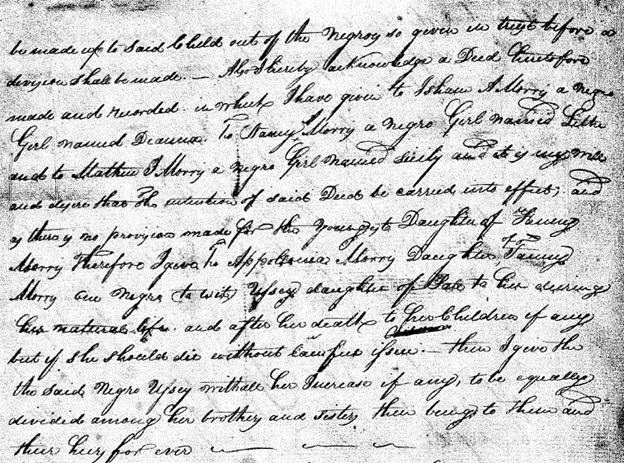 be made up to said Child out of the Negroes so given in trust before a
devision shall be made. — Also I hereby acknowledge a Deed heretofore
made and recorded in which I have given to Isham A Morry a negro
Girl named Deanna To Nancy Morry a Negro Girl named Lettle
and to Mathew J Morry a negro Girl named Sicily and it is my will
and desire that the intention of said Deed be carried into effect; and
as there is no provision made for the youngest Daughter of Fanny
Morry Therefore I give to Appolonia Morry Daughter of Fanny
Morry one Negro (to wit) Ussey daughter of Pate to her during
her natural life. and after her death to her Children if any
but if she should die without lawful issue. — then I give the
the said Negro Ussey with all her Increase if any, to be equally
divided among her brothers and sisters them being to them and
their heirs for ever